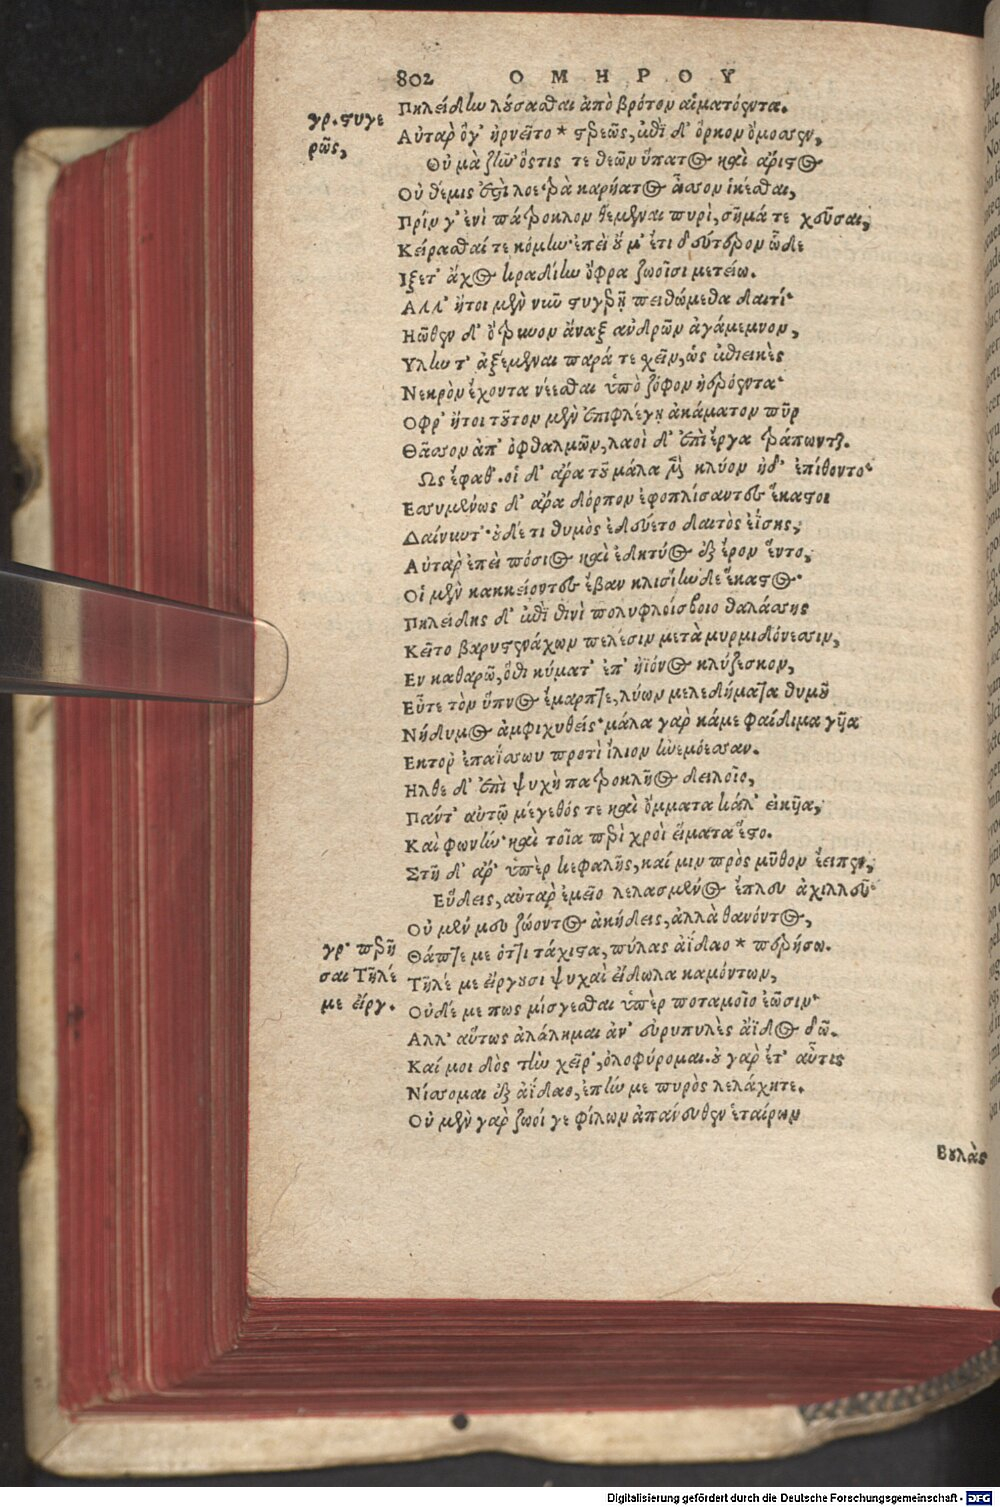 802 ΟΜΗΡΟΥ
Πηλείδην λούσασθαι ἀπὸ βρότον αἱματόεντα.
γρ. στυγε
ρῶς,
Αὐτὰρ ὅγ' ἠρνεῖτο * στρεῶς, ἐπὶ δ' ὅρκον ὄμοσσεν,
Οὐ μὰ ζῆν' ὅστις τε θεῶν ὕπατος καὶ ἄριστος
Οὐ θέμις ἐστὶ λοετρὰ καρήατος ἆσσον ἱκέσθαι,
Πρίν γ' ἐνὶ πάτροκλον θέμεναι πυρὶ, σῆμά τε χεῦσαι,
Κείρασθαί τε κόμην· ἐπεὶ οὔ μ' ἔτι δεύτερον ὧδε
Ιξετ' ἄχος κραδίην ὄφρα ζωοῖσι μετείω.
Αλλ' ἤτοι μὲν νῦν στυγερῇ πειθώμεθα δαιτί·
Ηῶθεν δ' ὄτρυνον ἄναξ ανδρῶν ἀγάμεμνον,
Υλην τ' ἀξέμεναι παρά τε χεῖν, ὡς ἐπιεικὲς
Νεκρὸν ἔχοντα νέεσθαι ὑπὸ ζόφον ἠερόεντα·
Οφρ' ἤτοι τοῦτον μὲν ἐπιφλέγῃ ἀκάματον πῦρ
Θᾶσσον ἀπ' ὀφθαλμῶν, λαοὶ δ' ἐπὶ ἔργα τράπωνται.
Ως ἔφαθ'. οἱ δ' ἄρα τοῦ μάλα μὲν κλύον ἠδ' ἐπίθοντο·
Εσσυμένως δ' ἄρα δόρπον ἐφοπλίσαντες ἕκαστοι
Δαίνυντ'· οὐδέ τι θυμὸς ἐδεύετο δαιτὸς ἐΐσης,
Αὐτὰρ ἐπεὶ πόσιος καὶ ἐδητύος ἐξ ἔρον ἕντο,
Οἱ μὲν κακκείοντες ἔβαν κλισίην δε ἕκαστος·
Πηλείδης δ' ἐπὶ θινὶ πολυφλοίσβοιο θαλάσσης
Κεῖτο βαρυστενάχων πολέσιν μετὰ μυρμιδόνεσσιν,
Εν καθαρῷ, ὅθι κύματ' ἐπ' ἠϊόνος κλύζεσκον,
Εὖτε τὸν ὕπνος ἔμαρπτε, λύων μελεδήματα θυμοῦ
Νήδυμος ἀμφιχυθείς· μάλα γὰρ κάμε φαίδιμα γυῖα
Εκτορ ἐπαΐσσων προτὶ ἴλιον ἠνεμόεσσαν.
Ηλθε δ' ἐπὶ ψυχὴ πατροκλῆος δειλοῖο,
Πάντ' αὐτῷ μέγεθός τε καὶ ὄμματα κάλ' εἰκυῖα,
Καὶ φωνήν· καὶ τοῖα περὶ χροὶ εἵματα ἕστο.
Στῆ δ' ἄρ' ὑπὲρ κεφαλῆς, καί μιν πρὸς μῦθον ἔειπεν,
Εὕδεις, αὐτὰρ ἐμεῖο λελασμένος ἔπλευ ἀχιλλεῦ·
Οὐ μέν μευ ζώοντος ἀκήδεις, ἀλλὰ θανόντος,
γρ· περῆ
σαι Τῆλέ
με εἴργ.
Θάπτε με ὅττι τάχιστα, πύλας ἀΐδαο * περήσω.
Τῆλέ με εἴργουσι ψυχαὶ εἴδωλα καμόντων,
Οὐδέ με πως μίσγεσθαι ὑπὲρ ποταμοῖο ἐῶσιν·
Αλλ' αὔτως ἀλάλημαι ἀν' εὐρυπυλὲς ἄϊδος δῶ.
Καί μοι δὸς τὴν χεῖρ', ὀλοφύρομαι. οὐ γὰρ ἔτ' αὖτις
Νίσσομαι ἐξ ἀΐδαο, ἐπήν με πυρὸς λελάχητε.
Οὐ μὲν γὰρ ζωοί γε φίλων ἀπάνευθεν ἑταίρων
Βουλὰς
Digitalisierung gefördert durch die Deutsche Forschungsgemeinschaft - DFG